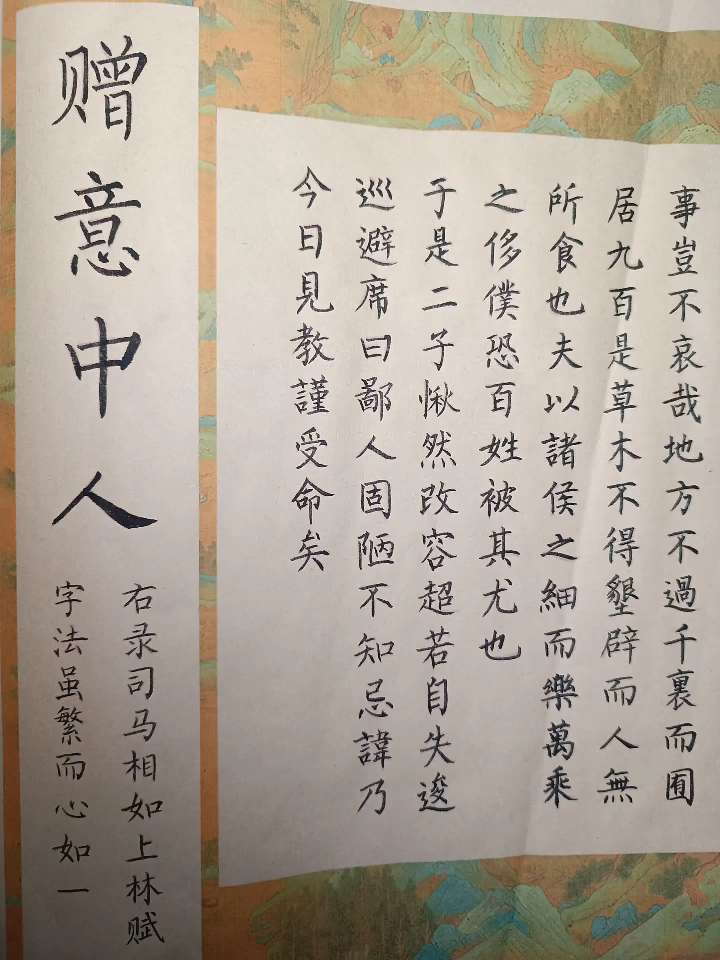 事豈不哀哉地方不過千裏而囿
居九百是草木不得墾辟而人無
所食也夫以諸侯之細而樂萬乘
之侈僕恐百姓被其尤也
于是二子愀然改容超若自失逡
巡避席曰鄙人固陋不知忌諱乃
今日見教謹受命矣
赠意中人
右录司马相如上林赋
字法虽繁而心如一